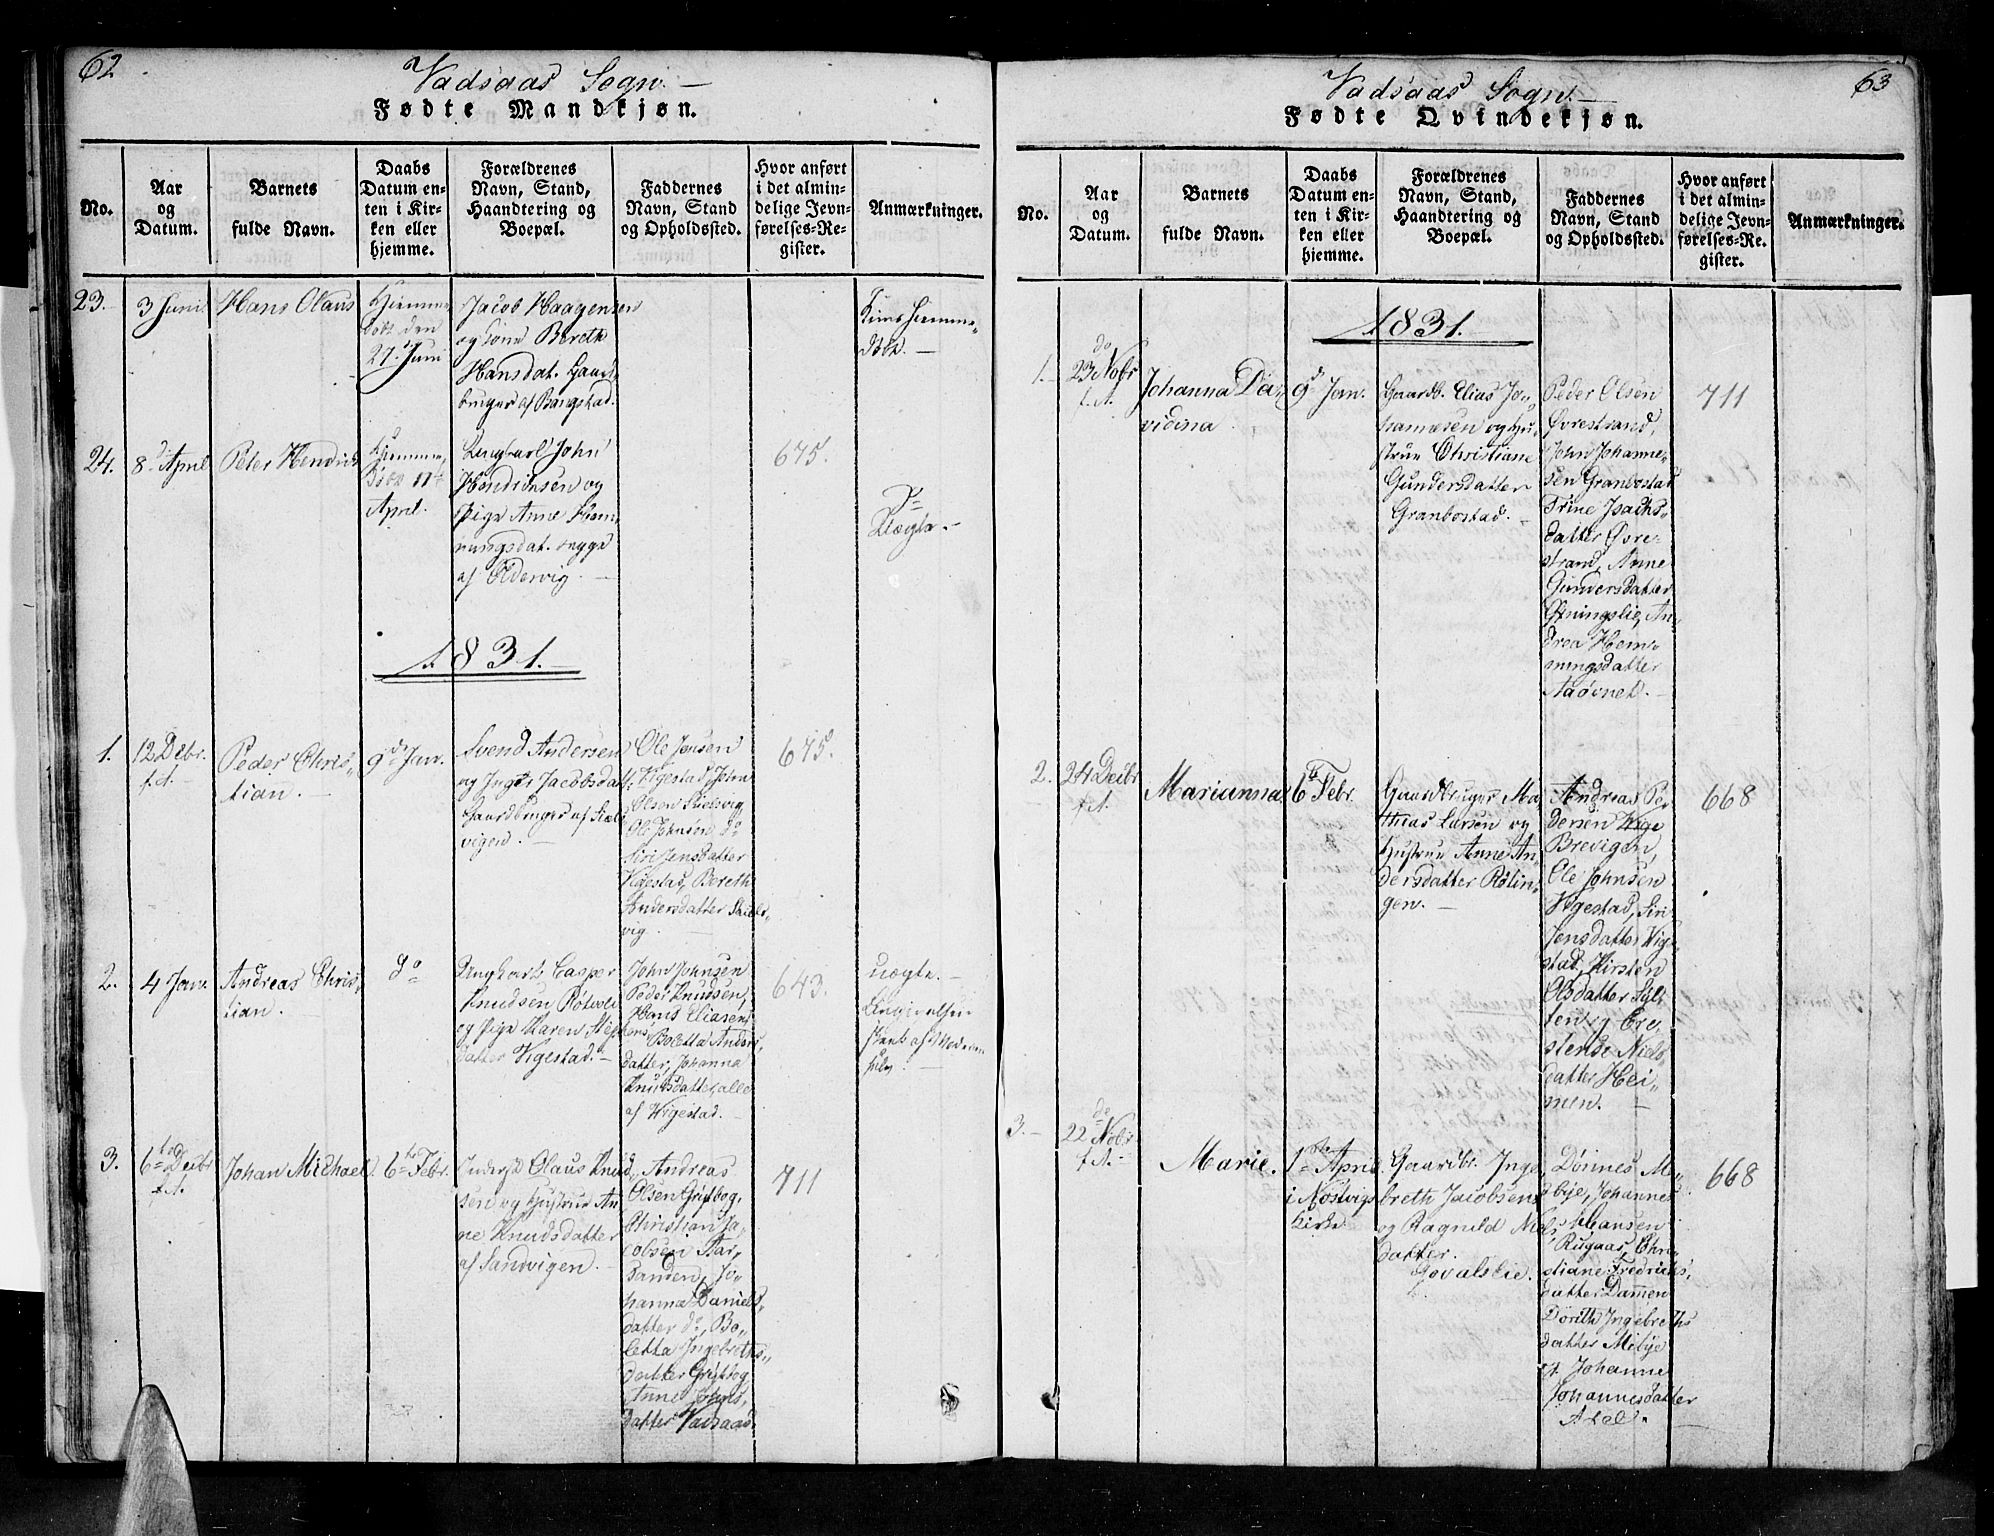 62
Vadsaas Sogn.
Fødte Mandkjøn.
No.
Aar
og
Datum.
Barnets
fulde Navn.
Daabs
Datum en-
ten i Kir-
ken eller
hjemme.
Forældrenes
Navn, Stand,
Haandtering og
Boepæl.
Faddernes
Navn, Stand
og Opholdssted.
Hvor anført
i det almin-
delige Jevn-
førelses-Re-
gister.
Anmærkninger.
23.
3 Juni
Hans Olaus
Hjemme
døbt den
27 Juni
Jacob Haagensen
og Kone Bereth
Hansdat. Gaard
bruger af Bangstad.
Hjemme-
døbt.
24.
8 April
Peter Hendrich
Hjemme
døbt 11
April.
Ungkarl John
Hendriksen og
Pige Anne Hem-
ningsdat. 
af Oldervig.
675.
Uægte.
1831.
1.
12 Debr.
f. A.
Peder Chris-
tian.
9 Jan.
Svend Andersen
og Inger Jacobsdatt.
Gaardbruger af Skiels
vigen.
Ole Jensen
Vigestad, John
Olsen Skielsvig
Ole Johnsen do
Siri Jensdatter
Vigestad, Bereth
Andersdatter Skiels-
vig.
675
2.
4 Jan.
Andreas Chris-
tian.
do
Ungkarl Casper
Knudsen Rølvoli
og Pige Karen
datter Vigestad.
John Johnsen
Peder Knudsen,
Hans Eliasen,
Boletta Anders,
datter, Johanna
Knudsdatter, alle
af Vigestad.
643.
uægte.
Angivelsen
skeet af Moderen
selv.
3.
6 Debr
f. A.
Johan Michael.
6 Febr.
Inderst Olaus Knud
sen og Hustrue An
ne Knudsdatter
af Sandvigen.
Andreas
Olsen Grytbog,
Christian Ja-
cobsen
, Jo-
hanna Daniels-
datter do, Bo-
letta Ingebreths-
datter Grytbog
Anne Johns,
datter Vadsaas.
711
63
Vadsaas Sogn.
Fødte Qvindekjøn.
No.
Aar
og
Datum.
Barnets
fulde Navn.
Daabs
Datum en-
ten i Kir-
ken eller
hjemme.
Forældrenes
Navn, Stand,
Haandtering og
Boepæl.
Faddernes
Navn, Stand
og Opholdssted.
Hvor anført
i det almin-
delige Jevn-
førelses-Re-
gister.
Anmærkninger.
1831.
1.
23 Nobr
f. A.
Johanna Da-
vidina
9 Jan.
Gaardb. Elias Jo-
hannesen og Hu-
strue Christiane
Gundersdatter
Granbostad.
Peder Olsen
Øvrestrand,
John Johanne-
sen Granbostad
Trine Isachs-
datter Øvre-
strand, Anne
Gundersdatter
Horningslie, An-
drea Hem-
ningsdatter
711
2.
24 Debr
f. A.
Marianna
6 Febr.
Gaardbruger Ma-
thias Larsen og
Hustrue Anne An-
dersdatter Rølin-
gen.
Andreas Pe-
dersen
Brevigen,
Ole Johnsen
Vigestad, Siri
Jensdatter Vig-
stad, Kirsten
Olsdatter Syl-
ten og Cre-
stense Niels
datter Hei-
men.
668
3.
22 Nobr
f. A.
Marie.
1ste April
i Nostvigs
Kirke
Gaardbr. Inge
breth Jacobsen
og Ragnild Niels
datter.
Govalslie.
Dønnes Me-
bye, Johannes
Hansen
Rugaas, Chri-
stiane Fredrichs-
datter Dammen
Dorith Ingebreths
datter Mebye
og Johanne
Johannesdatter
668